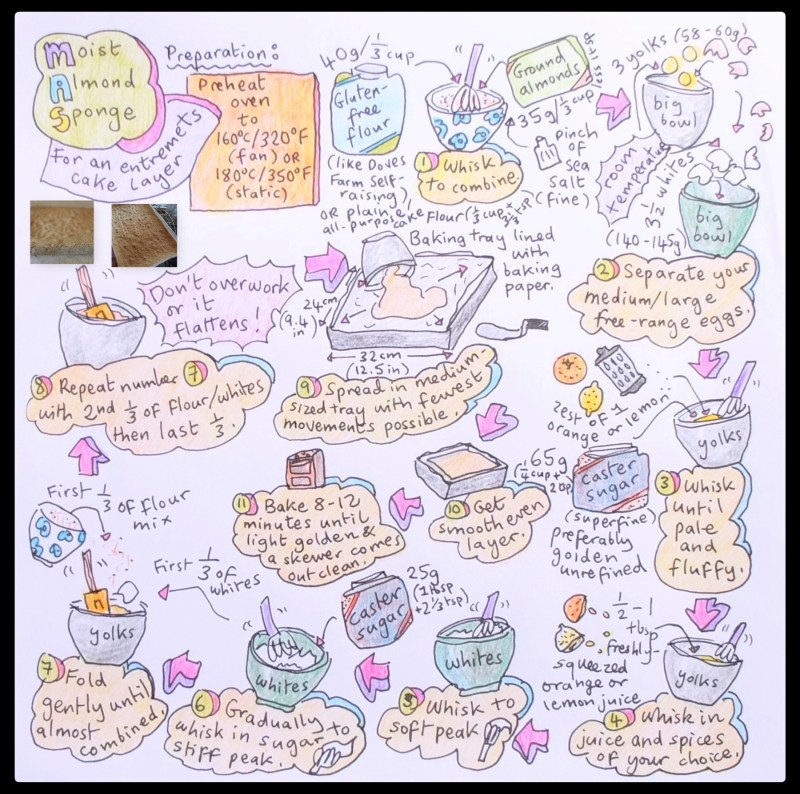 Moist
Almond
Sponge
For an entremets
cake layer
Preparation:
Preheat
oven
to
160°C/320°F
(fan) OR
180°C/350°F
(static)
40g/⅓ cup
Gluten-
free
flour
(like Doves
Farm Self-
raising)
OR plain/
all-purpose
cake flour
Ground
almonds
35g/⅓ cup
Pinch
of
sea
salt
(fine)
① Whisk
to combine.
3 yolks (58-60g)
big
bowl
room
temperature
3-½ whites
(140-145g)
big
bowl
② Separate your
medium/large
free-range eggs.
zest of 1
orange or lemon
yolks
65g
caster
sugar
(superfine)
preferably
golden
unrefined
③ Whisk
until
pale
and
fluffy.
½-1
tbsp
freshly-
squeezed
orange or
lemon juice
yolks
④ Whisk in
juice and spices
of your choice.
whites
⑤ Whisk to
soft peak
25g
(1 tbsp
+2⅓ tsp)
caster
sugar
whites
⑥ Gradually
whisk in sugar to
stiff peak.
First ⅓ of
whites
First ⅓ of flour
mix
yolks
⑦ Fold
gently until
almost
combined.
⑧ Repeat number ⑦
with 2nd ⅓ of flour/whites
then last ⅓.
Don't overwork
or it
flattens!
Baking tray lined
with
baking
paper.
24cm
(9.4
in)
32cm
(12.5in)
⑨ Spread in medium-
sized tray with fewest
movements possible.
⑩ Get
smooth even
layer.
⑪ Bake 8-12
minutes until
light golden &
a skewer comes
out clean.